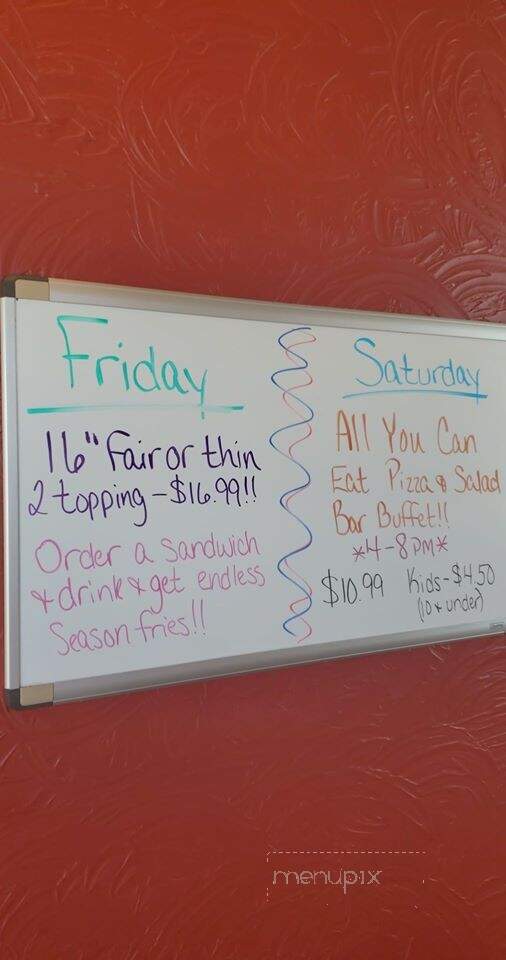 Friday
16" Fair or thin
2 topping - $16.99!!
Order a sandwich
& drink & get endless
Season fries!!
Saturday
All You Can
Eat Pizza & Salad
Bar Buffet!!
*4-8 PM*
$10.99 Kids - $4.50
(10 & under)
menupix